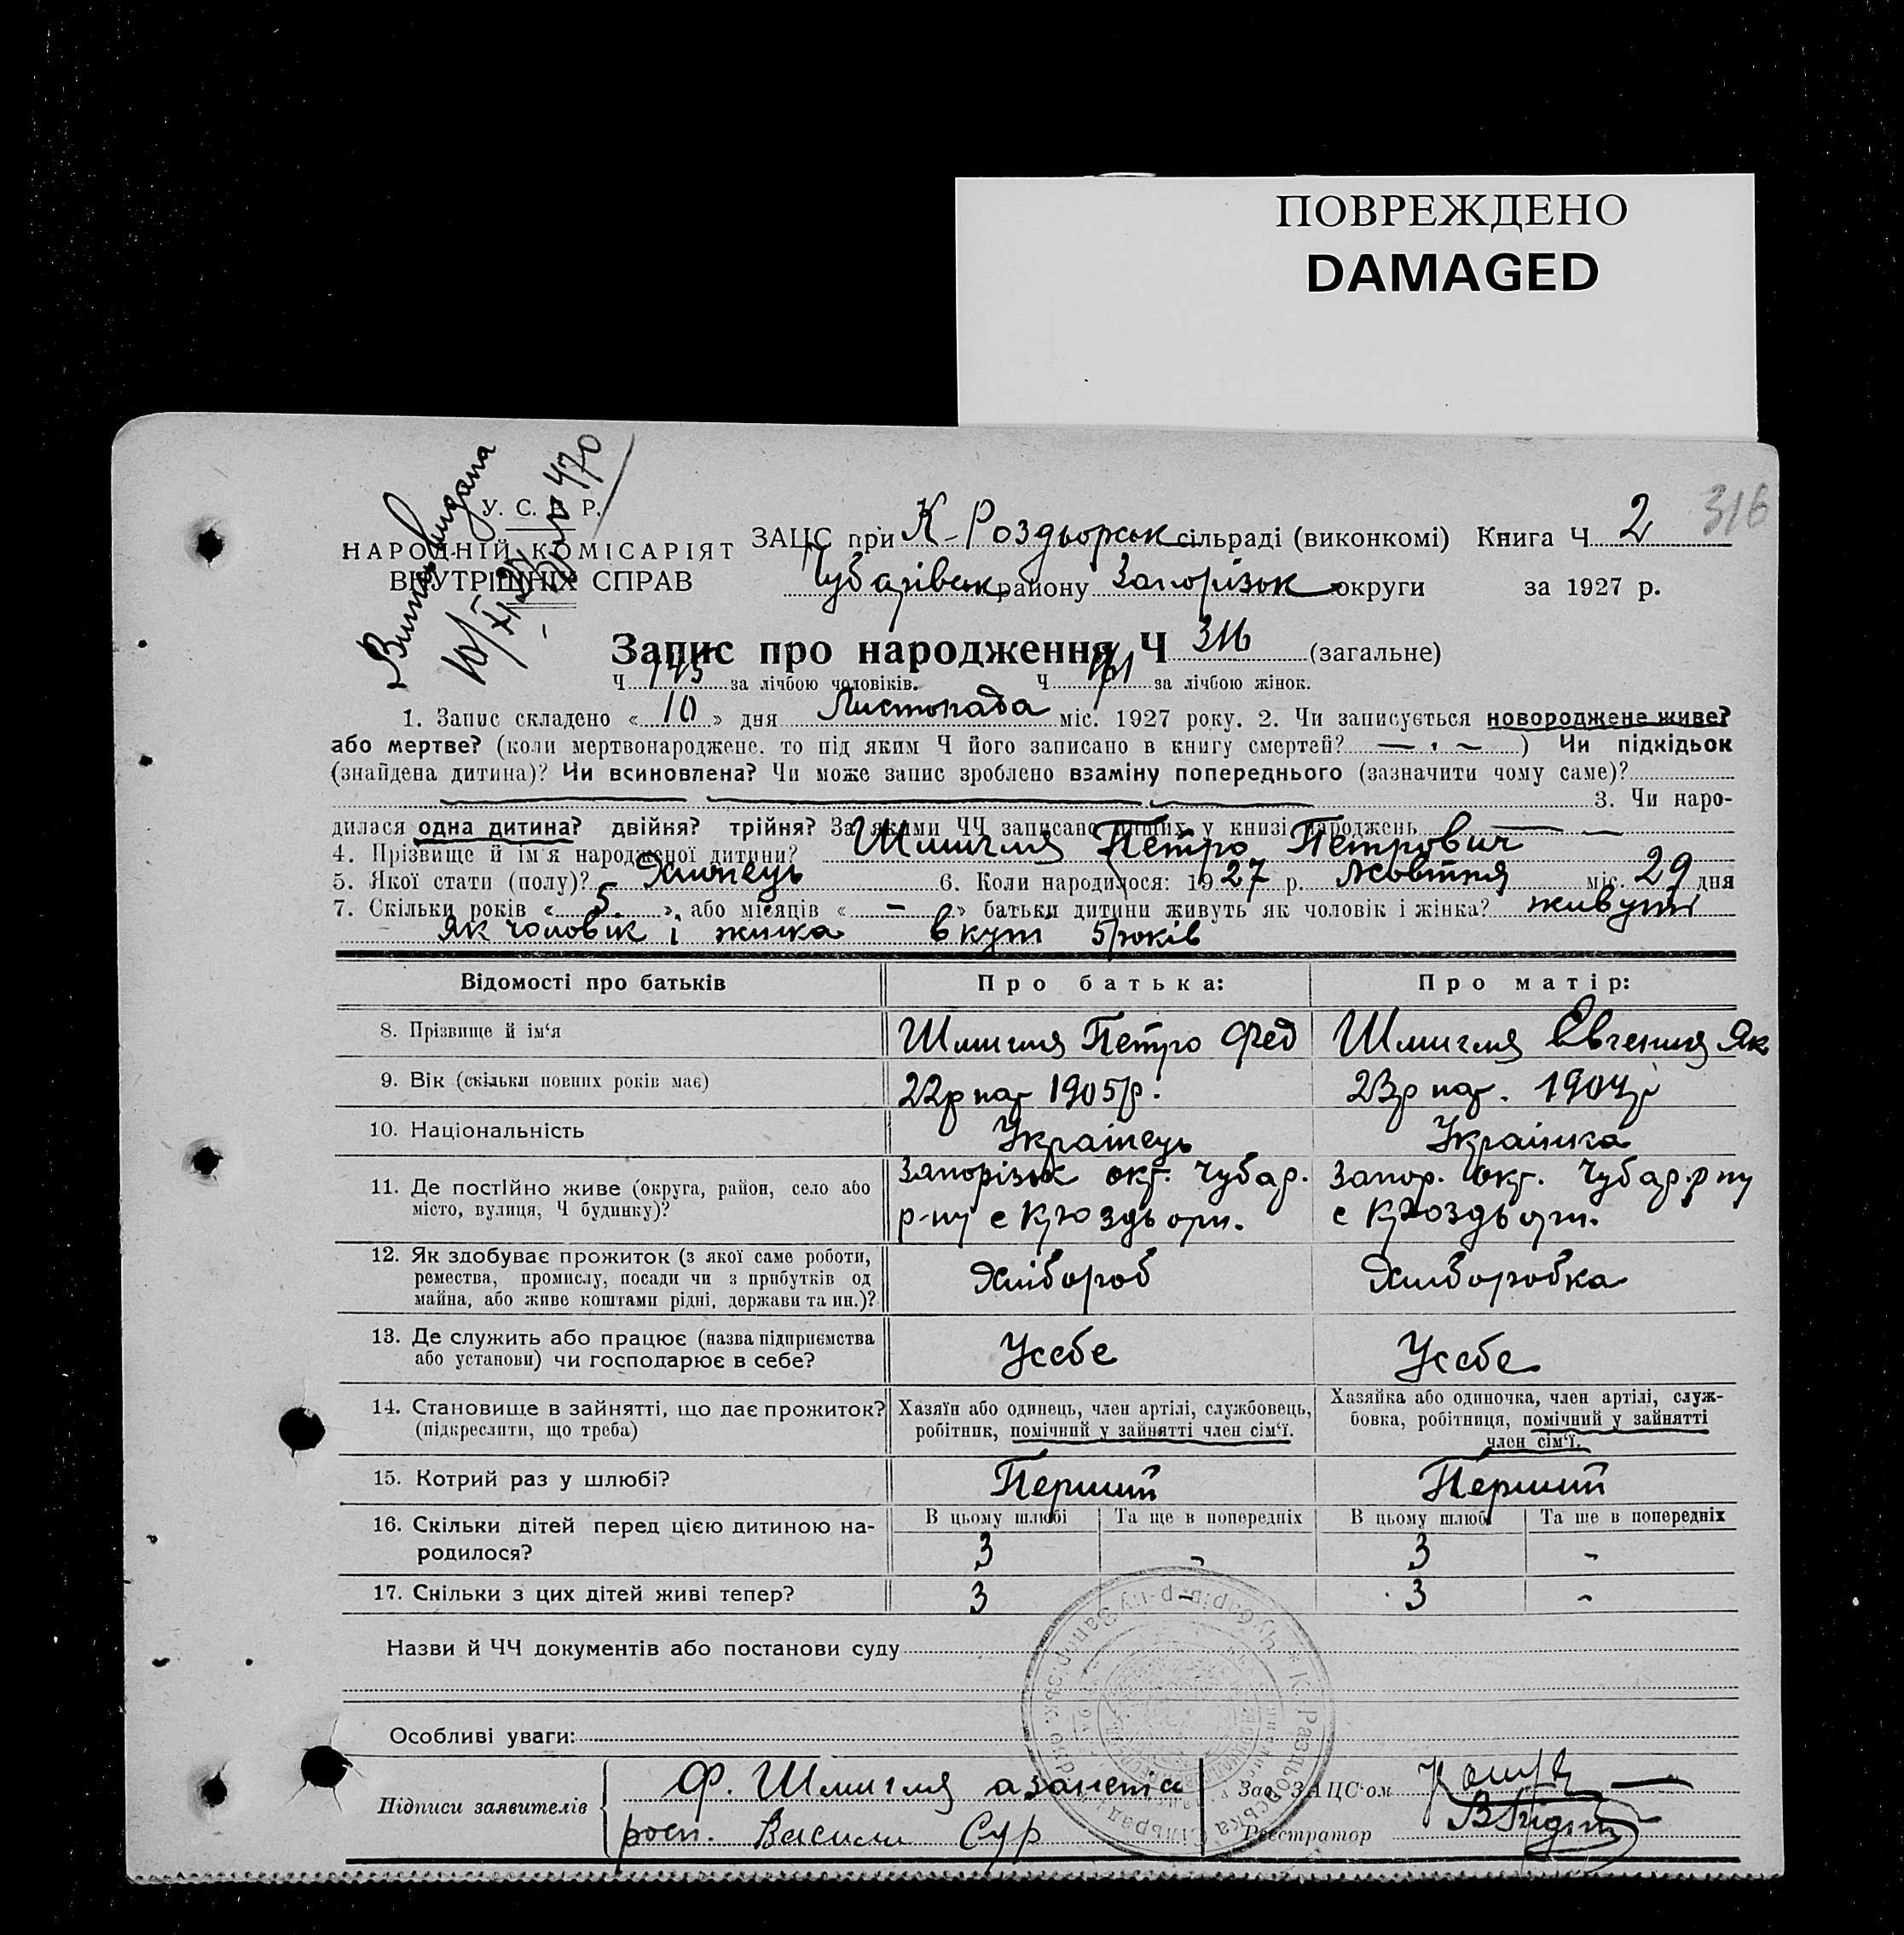 ПОВРЕЖДЕНО
DAMAGED
316
Виписъ видана
10/XI 27 470
У. С. Р. Р.
НАРОДНІЙ КОМІСАРІЯТ
ВНУТРІШНІХ СПРАВ
ЗАЦС при К-Роздьорськ сільраді (виконкомі) Книга Ч 2
Чубарівськ району Запорізьк округи за 1927 р.
Запис про народження Ч 316 (загальне)
Ч 145 за лічбою чоловіків. Ч 161 за лічбою жінок.
1. Запис складено « 10 » дня Листопада міс. 1927 року. 2. Чи записується новороджене живе?
або мертве? (коли мертвонароджене. то під яким Ч його записано в книгу смертей? — ) Чи підкідьок
(знайдена дитина)? Чи всиновлена? Чи може запис зроблено взаміну попереднього (зазначити чому саме)?
3. Чи наро-
дилася одна дитина? двійня? трійня? За якими ЧЧ записано инших у книзі народжень
4. Прізвище й ім'я народженої дитини? Шмигля Петро Петрович
5. Якої стати (полу)? Хлопець 6. Коли народилося: 1927 р. Жовтня міс. 29 дня
7. Скільки років « 5 », або місяців « - » батьки дитини живуть як чоловік і жінка? живуть
як чоловік і жинка вкуп 5 років
Відомості про батьків Про батька: Про матір:
8. Прізвище й ім'я Шмигля Петро Фед Шмигля Євгения Як
9. Вік (скільки повних років має) 22р нар 1905р. 23р нар. 1904р
10. Національність Українець Українка
11. Де постійно живе (округа, район, село або місто, вулиця, Ч будинку)? Запорізьк окр. Чубар. Запор. окр. Чубар. р ну
р-ну с Кроздьори. с Кроздьори.
12. Як здобуває прожиток (з якої саме роботи,
ремества, промислу, посади чи з прибутків од
майна, або живе коштами рідні, держави та ин.)? Хлібороб Хліборобка
13. Де служить або працює (назва підприємства
або установи) чи господарює в себе? Усебе Усебе
14. Становище в зайнятті, що дає прожиток? Хазяїн або одинець, член артілі, службовець, Хазяйка або одиночка, член артілі, служ-
(підкреслити, що треба) робітник, помічний у зайнятті член сім'ї. бовка, робітниця, помічний у зайнятті
член сім'ї.
15. Котрий раз у шлюбі? Перший Перший
16. Скільки дітей перед цією дитиною на- В цьому шлюбі Та ще в попередніх В цьому шлюбі Та ще в попередніх
родилося? 3 - 3 -
17. Скільки з цих дітей живі тепер? 3 - 3 -
Назви й ЧЧ документів або постанови суду
Особливі уваги:
Підписи заявителів Ф. Шмигля
росп. Васили Сур
Зав. ЗАЦС'ом
Реєстратор